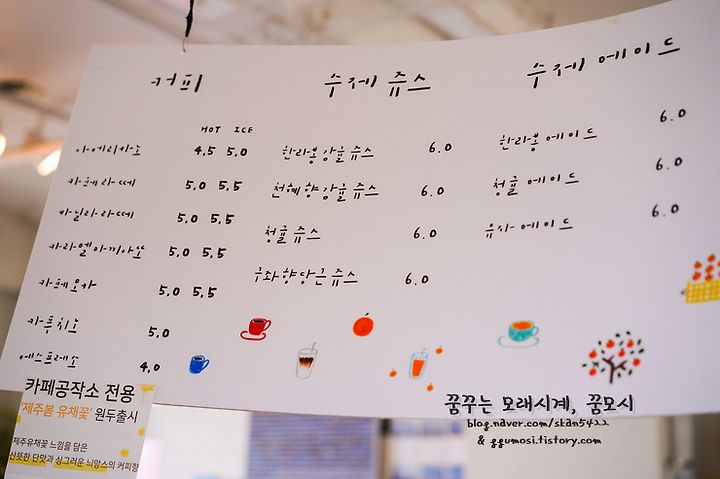 커피
HOT ICE
아메리카노 4.5 5.0
카페라떼 5.0 5.5
바닐라라떼 5.0 5.5
카라멜마끼아또 5.0 5.5
카페모카 5.0 5.5
카푸치노 5.0
에스프레소 4.0
수제 쥬스
한라봉감귤쥬스 6.0
천혜향감귤쥬스 6.0
청귤쥬스 6.0
구좌향당근쥬스 6.0
수제 에이드
한라봉에이드 6.0
청귤에이드 6.0
유자에이드 6.0
카페공작소 전용
'제주봄 유채꽃' 원두출시
제주유채꽃 느낌을 담은
산뜻한 단맛과 싱그러운 늬앙스의 커피향
꿈꾸는 모래시계, 꿈모시
blog.naver.com/skan5422
& ggumosi.tistory.com